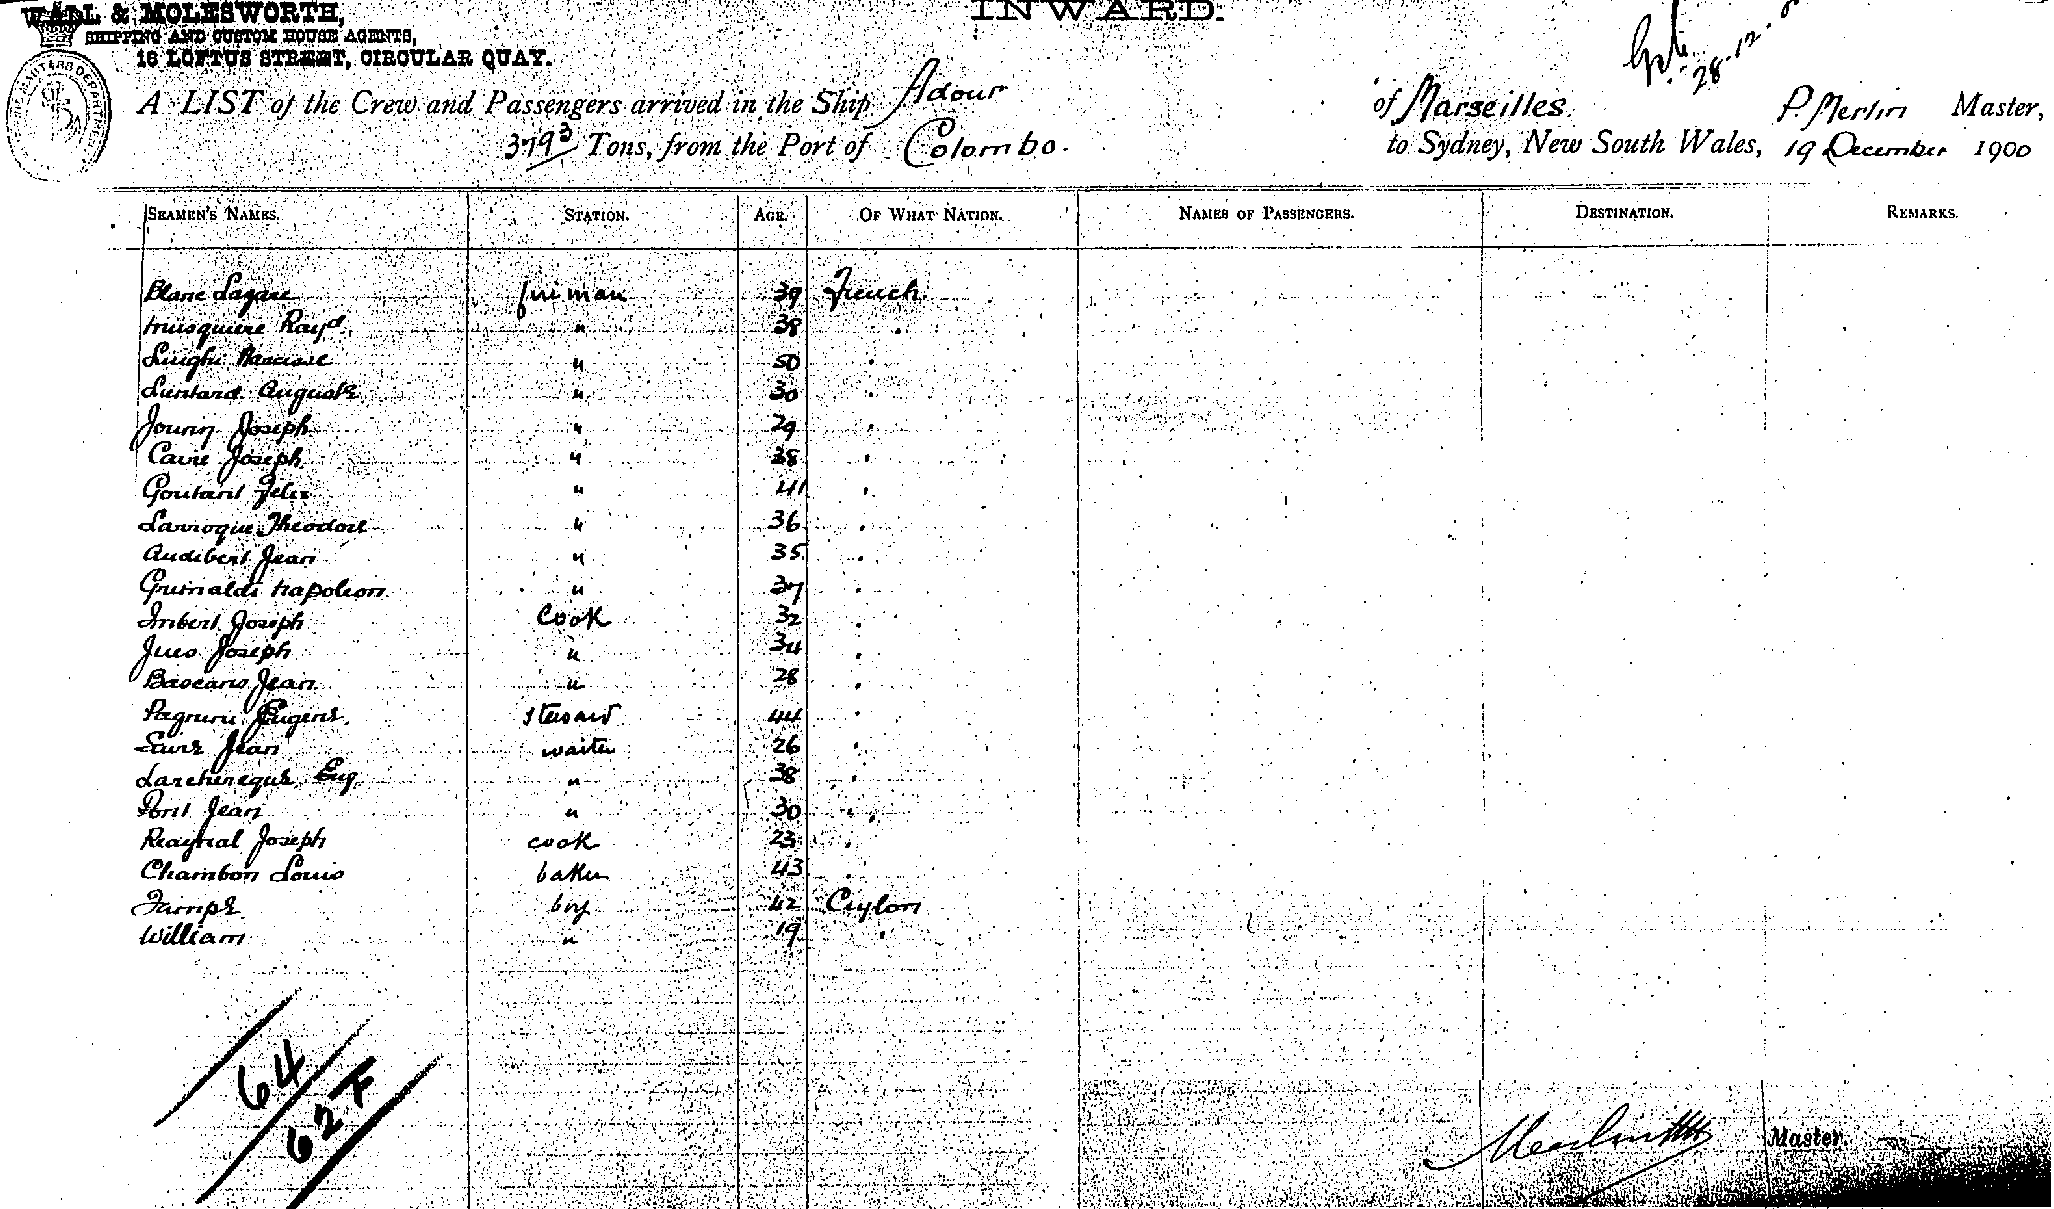 WALL & MOLESWORTH,
SHIPPING AND CUSTOM HOUSE AGENTS,
16 LOFTUS STREET, CIRCULAR QUAY.
INWARD.
28.12.
A LIST of the Crew and Passengers arrived in the Ship Adour of Marseilles. P. Merlin Master,
3793 Tons, from the Port of Colombo. to Sydney, New South Wales, 19 December 1900
SEAMEN'S NAMES. STATION. AGE. OF WHAT NATION. NAMES OF PASSENGERS. DESTINATION. REMARKS.
Blanc Lazare fireman 39 French
Ray^d " 38 "
" 50 "
Auguste " 30 "
Jourin Joseph " 29 "
Caire Joseph " 38 "
Goutant Felix " 41 "
Larroque Theodore " 36 "
Audibert Jean " 35 "
Grimaldi Napoleon " 37 "
Imbert Joseph Cook 32 "
Joseph " 34 "
Jean " 28 "
Eugene steward 44 "
Jean waiter 26 "
Eug " 38 "
Pont Jean " 30 "
Raynal Joseph cook 23 "
Chambon Louis baker 43 "
boy 42 Ceylon
William " 19 "
64
62 F
Merlin Master.